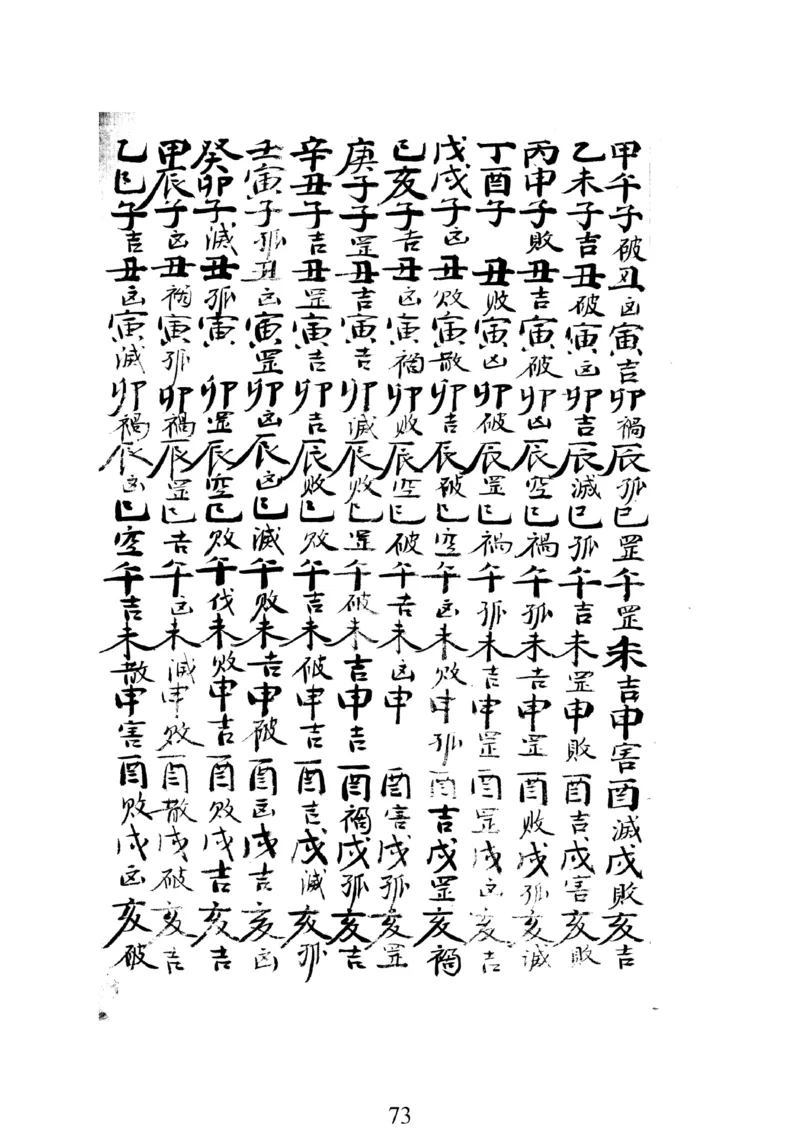 甲午子破丑凶寅吉卯禍辰孤巳罡午罡未吉申害酉滅戌敗亥吉
乙未子吉丑破寅凶卯吉辰滅巳孤午吉未罡申敗酉吉戌害亥敗
丙申子敗丑吉寅破卯凶辰空巳禍午孤未吉申罡酉敗戌孤亥滅
丁酉子丑敗寅凶卯破辰罡巳禍午孤未吉申罡酉罡戌凶亥吉
戊戌子凶丑敗寅散卯吉辰破巳空午凶未敗申孤酉吉戌罡亥禍
己亥子吉丑凶寅禍卯敗辰空巳破午吉未凶申酉害戌孤亥罡
庚子子罡丑吉寅吉卯滅辰敗巳罡午破未吉申吉酉禍戌孤亥吉
辛丑子吉丑罡寅吉卯吉辰敗巳敗午吉未破申吉酉吉戌滅亥孤
壬寅子孤丑凶寅罡卯凶辰凶巳滅午敗未吉申破酉凶戌吉亥凶
癸卯子滅丑孤寅卯罡辰空巳敗午伐未敗申吉酉敗戌吉亥吉
甲辰子凶丑禍寅孤卯禍辰罡巳吉午凶未滅申敗酉散戌破亥吉
乙巳子吉丑凶寅滅卯禍辰凶巳空午吉未散申害酉敗戌凶亥破
73